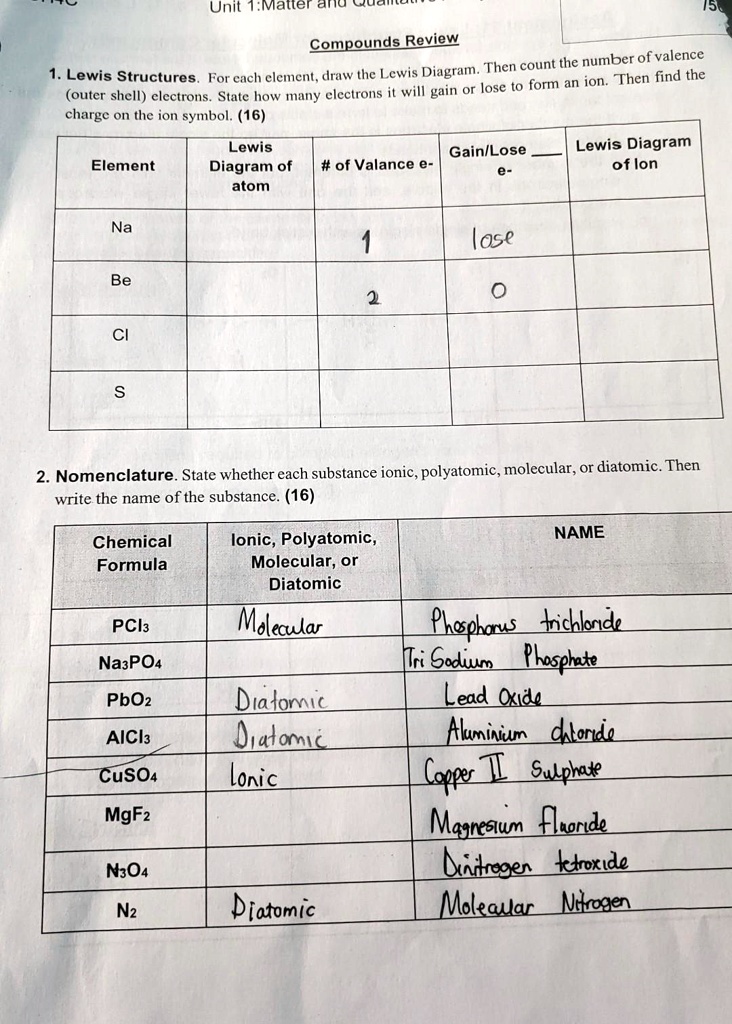 Unit 1:Matter and
15
Compounds Review
1. Lewis Structures. For each element, draw the Lewis Diagram. Then count the number of valence
(outer shell) electrons. State how many electrons it will gain or lose to form an ion. Then find the
charge on the ion symbol. (16)
Element
Lewis Diagram of atom
# of Valance e-
Gain/Lose ____ e-
Lewis Diagram of Ion
Na 1 lose
Be 2 0
Cl
S
2. Nomenclature. State whether each substance ionic, polyatomic, molecular, or diatomic. Then
write the name of the substance. (16)
Chemical Formula
Ionic, Polyatomic, Molecular, or Diatomic
NAME
PCl3 Molecular Phosphorus trichloride
Na3PO4 Tri Sodium Phosphate
PbO2 Diatomic Lead Oxide
AlCl3 Diatomic Aluminium chloride
CuSO4 Ionic Copper II Sulphate
MgF2 Magnesium fluoride
N3O4 Dinitrogen tetroxide
N2 Diatomic Molecular Nitrogen